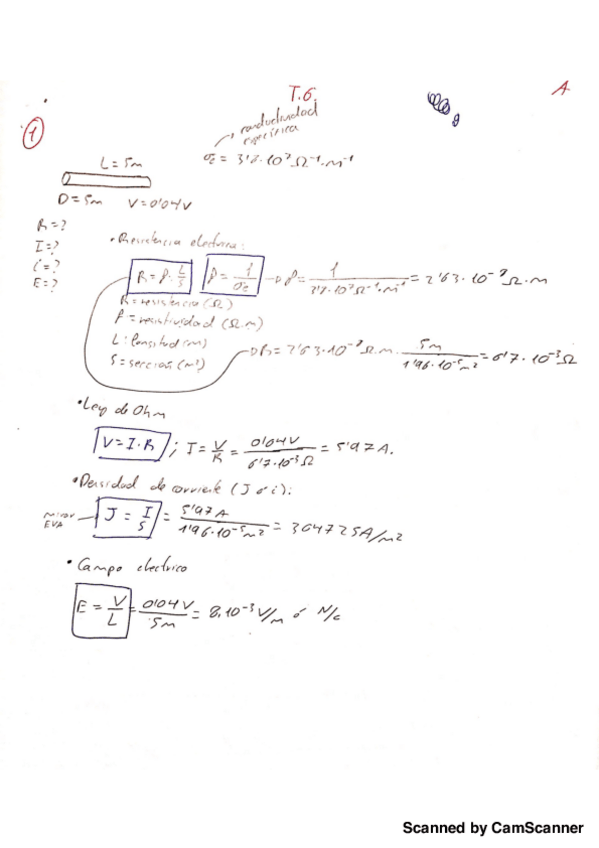 T.6.
A
1
conductividad
específica
σe = 3'8·10⁷ Ω⁻¹·m⁻¹
L = 5m
D = 5m V = 0'04V
R = ?
I = ?
i = ?
E = ?
• Resistencia electrica:
R = ρ·L/S ρ = 1/σe → ρ = 1/3'8·10⁷Ω⁻¹·m⁻¹ = 2'63·10⁻⁸ Ω·m
R = resistencia (Ω)
ρ = resistividad (Ω·m)
L: longitud (m)
S = sección (m²)
→ R = 2'63·10⁻⁸ Ω·m · 5m/1'96·10⁻⁵m² = 6'7·10⁻³ Ω
• Ley de Ohm
V = I·R ; I = V/R = 0'04V/6'7·10⁻³Ω = 5'97 A.
• Densidad de corriente (J ó i):
mirar
EVA
J = I/S = 5'97A/1'96·10⁻⁵m² = 304725A/m²
• Campo electrico
E = V/L = 0'04V/5m = 8·10⁻³ V/m ó N/c
Scanned by CamScanner